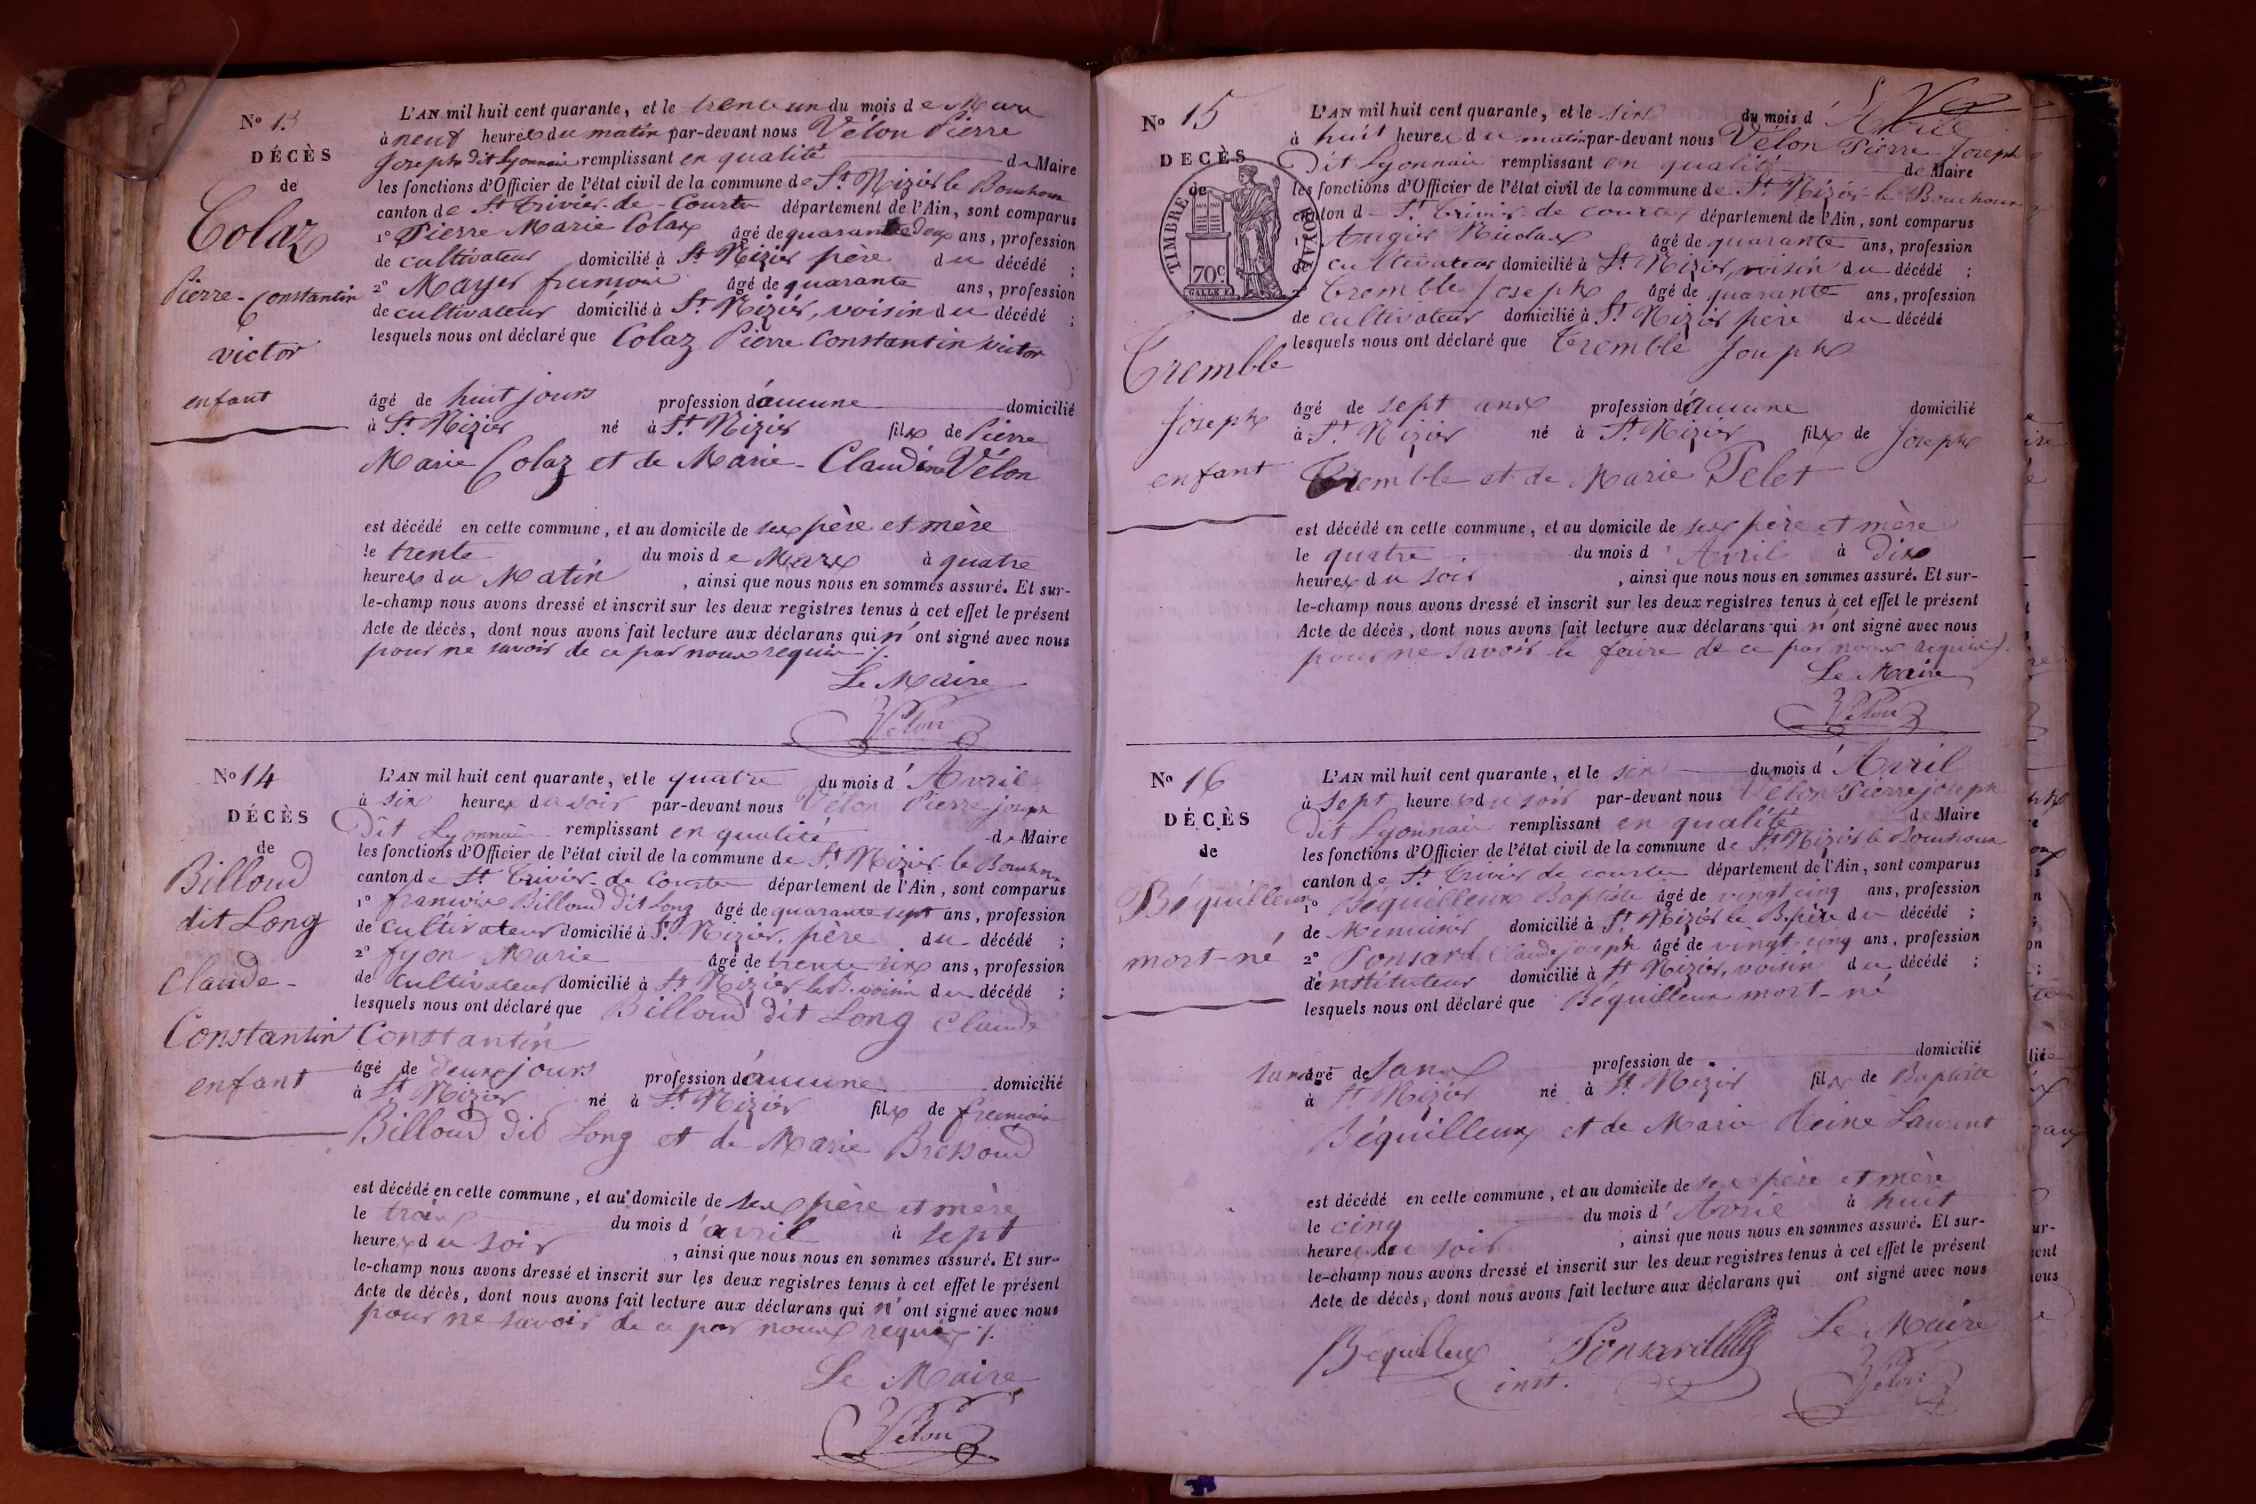 No 13
DÉCÈS
de
Colaz
Pierre-Constantin
victor
enfant
L'AN mil huit cent quarante, et le trente un du mois de Mars
à neuf heures du matin par-devant nous Vélon Pierre
Joseph dit Lyonnais remplissant en qualité de Maire
les fonctions d'Officier de l'état civil de la commune de St Nizier le Bouchoux
canton de St Trivier-de-Courtes département de l'Ain, sont comparus
1o Pierre Marie Colaz âgé de quarante deux ans, profession
de cultivateur domicilié à St Nizier père du décédé ;
2o Mayer françois âgé de quarante ans, profession
de cultivateur domicilié à St Nizier, voisin du décédé ;
lesquels nous ont déclaré que Colaz Pierre Constantin victor
âgé de huit jours profession d'aucune domicilié
à St Nizier né à St Nizier fils de Pierre
Marie Colaz et de Marie-Claudine Vélon
est décédé en cette commune, et au domicile de ses père et mère
le trente du mois de Mars à quatre
heures du Matin , ainsi que nous nous en sommes assuré. Et sur-
le-champ nous avons dressé et inscrit sur les deux registres tenus à cet effet le présent
Acte de décès, dont nous avons fait lecture aux déclarans qui n'ont signé avec nous
pour ne savoir de ce par nous requis ./.
Le Maire
Vélon
No 14
DÉCÈS
de
Billoud
dit Long
Claude-
Constantin
enfant
L'AN mil huit cent quarante, et le quatre du mois d'Avril
à six heures du soir par-devant nous Vélon Pierre joseph
Dit Lyonnais remplissant en qualité de Maire
les fonctions d'Officier de l'état civil de la commune de St Nizier-le Bouchoux
canton de St Trivier-de Courtes département de l'Ain, sont comparus
1o françois Billoud dit Long âgé de quarante sept ans, profession
de cultivateur domicilié à St Nizier, père du décédé ;
2o fyon Marie âgé de trente six ans, profession
de cultivateur domicilié à St Nizier le B. voisin du décédé ;
lesquels nous ont déclaré que Billoud dit Long Claude
Constantin
âgé de deux jours profession d'aucune domicilié
à St Nizier né à St Nizier fils de françois
Billoud dit Long et de Marie Bressoud
est décédé en cette commune, et au domicile de ses père et mère
le trois du mois d'avril à sept
heures du soir , ainsi que nous nous en sommes assuré. Et sur-
le-champ nous avons dressé et inscrit sur les deux registres tenus à cet effet le présent
Acte de décès, dont nous avons fait lecture aux déclarans qui n'ont signé avec nous
pour ne savoir de ce par nous requis ./.
Le Maire
Vélon
No 15
DÉCÈS
de
TIMBRE ROYAL
70c
Tremble
Joseph
enfant
L'AN mil huit cent quarante, et le six du mois d'Avril
à huit heures du matin par-devant nous Vélon Pierre Joseph
Dit Lyonnais remplissant en qualité de Maire
les fonctions d'Officier de l'état civil de la commune de St Nizier-le Bouchoux
canton de St Trivier-de courtes département de l'Ain, sont comparus
Augier Nicolas âgé de quarante ans, profession
de cultivateur domicilié à St Nizier, voisin du décédé ;
2o Tremble Joseph âgé de quarante ans, profession
de cultivateur domicilié à St Nizier père du décédé
lesquels nous ont déclaré que Tremble Joseph
âgé de sept ans profession d'aucune domicilié
à St Nizier né à St Nizier fils de Joseph
Tremble et de Marie Pelet
est décédé en cette commune, et au domicile de ses père et mère
le quatre du mois d'Avril à dix
heures du soir , ainsi que nous nous en sommes assuré. Et sur-
le-champ nous avons dressé et inscrit sur les deux registres tenus à cet effet le présent
Acte de décès, dont nous avons fait lecture aux déclarans qui n'ont signé avec nous
pour ne savoir le faire de ce par nous requis ./.
Le Maire
Vélon
No 16
DÉCÈS
de
Béquilleux
mort-né
L'AN mil huit cent quarante, et le six du mois d'Avril
à sept heures du soir par-devant nous Vélon Pierre joseph
dit Lyonnais remplissant en qualité de Maire
les fonctions d'Officier de l'état civil de la commune de St Nizier le Bouchoux
canton de St Trivier de courtes département de l'Ain, sont comparus
1o Béquilleux Baptiste âgé de vingt cinq ans, profession
de Menuisier domicilié à St Nizier le B. père du décédé ;
2o Ponsard Claude joseph âgé de vingt-cinq ans, profession
d'instituteur domicilié à St Nizier, voisin du décédé ;
lesquels nous ont déclaré que Béquilleux mort-né
âgé de sans profession de domicilié
à St Nizier né à St Nizier fils de Baptiste
Béquilleux et de Marie Reine Laurent
est décédé en cette commune, et au domicile de ses père et mère
le cinq du mois d'Avril à huit
heures du soir , ainsi que nous nous en sommes assuré. Et sur-
le-champ nous avons dressé et inscrit sur les deux registres tenus à cet effet le présent
Acte de décès, dont nous avons fait lecture aux déclarans qui ont signé avec nous
Béquilleux Ponsard Le Maire
inst. Vélon